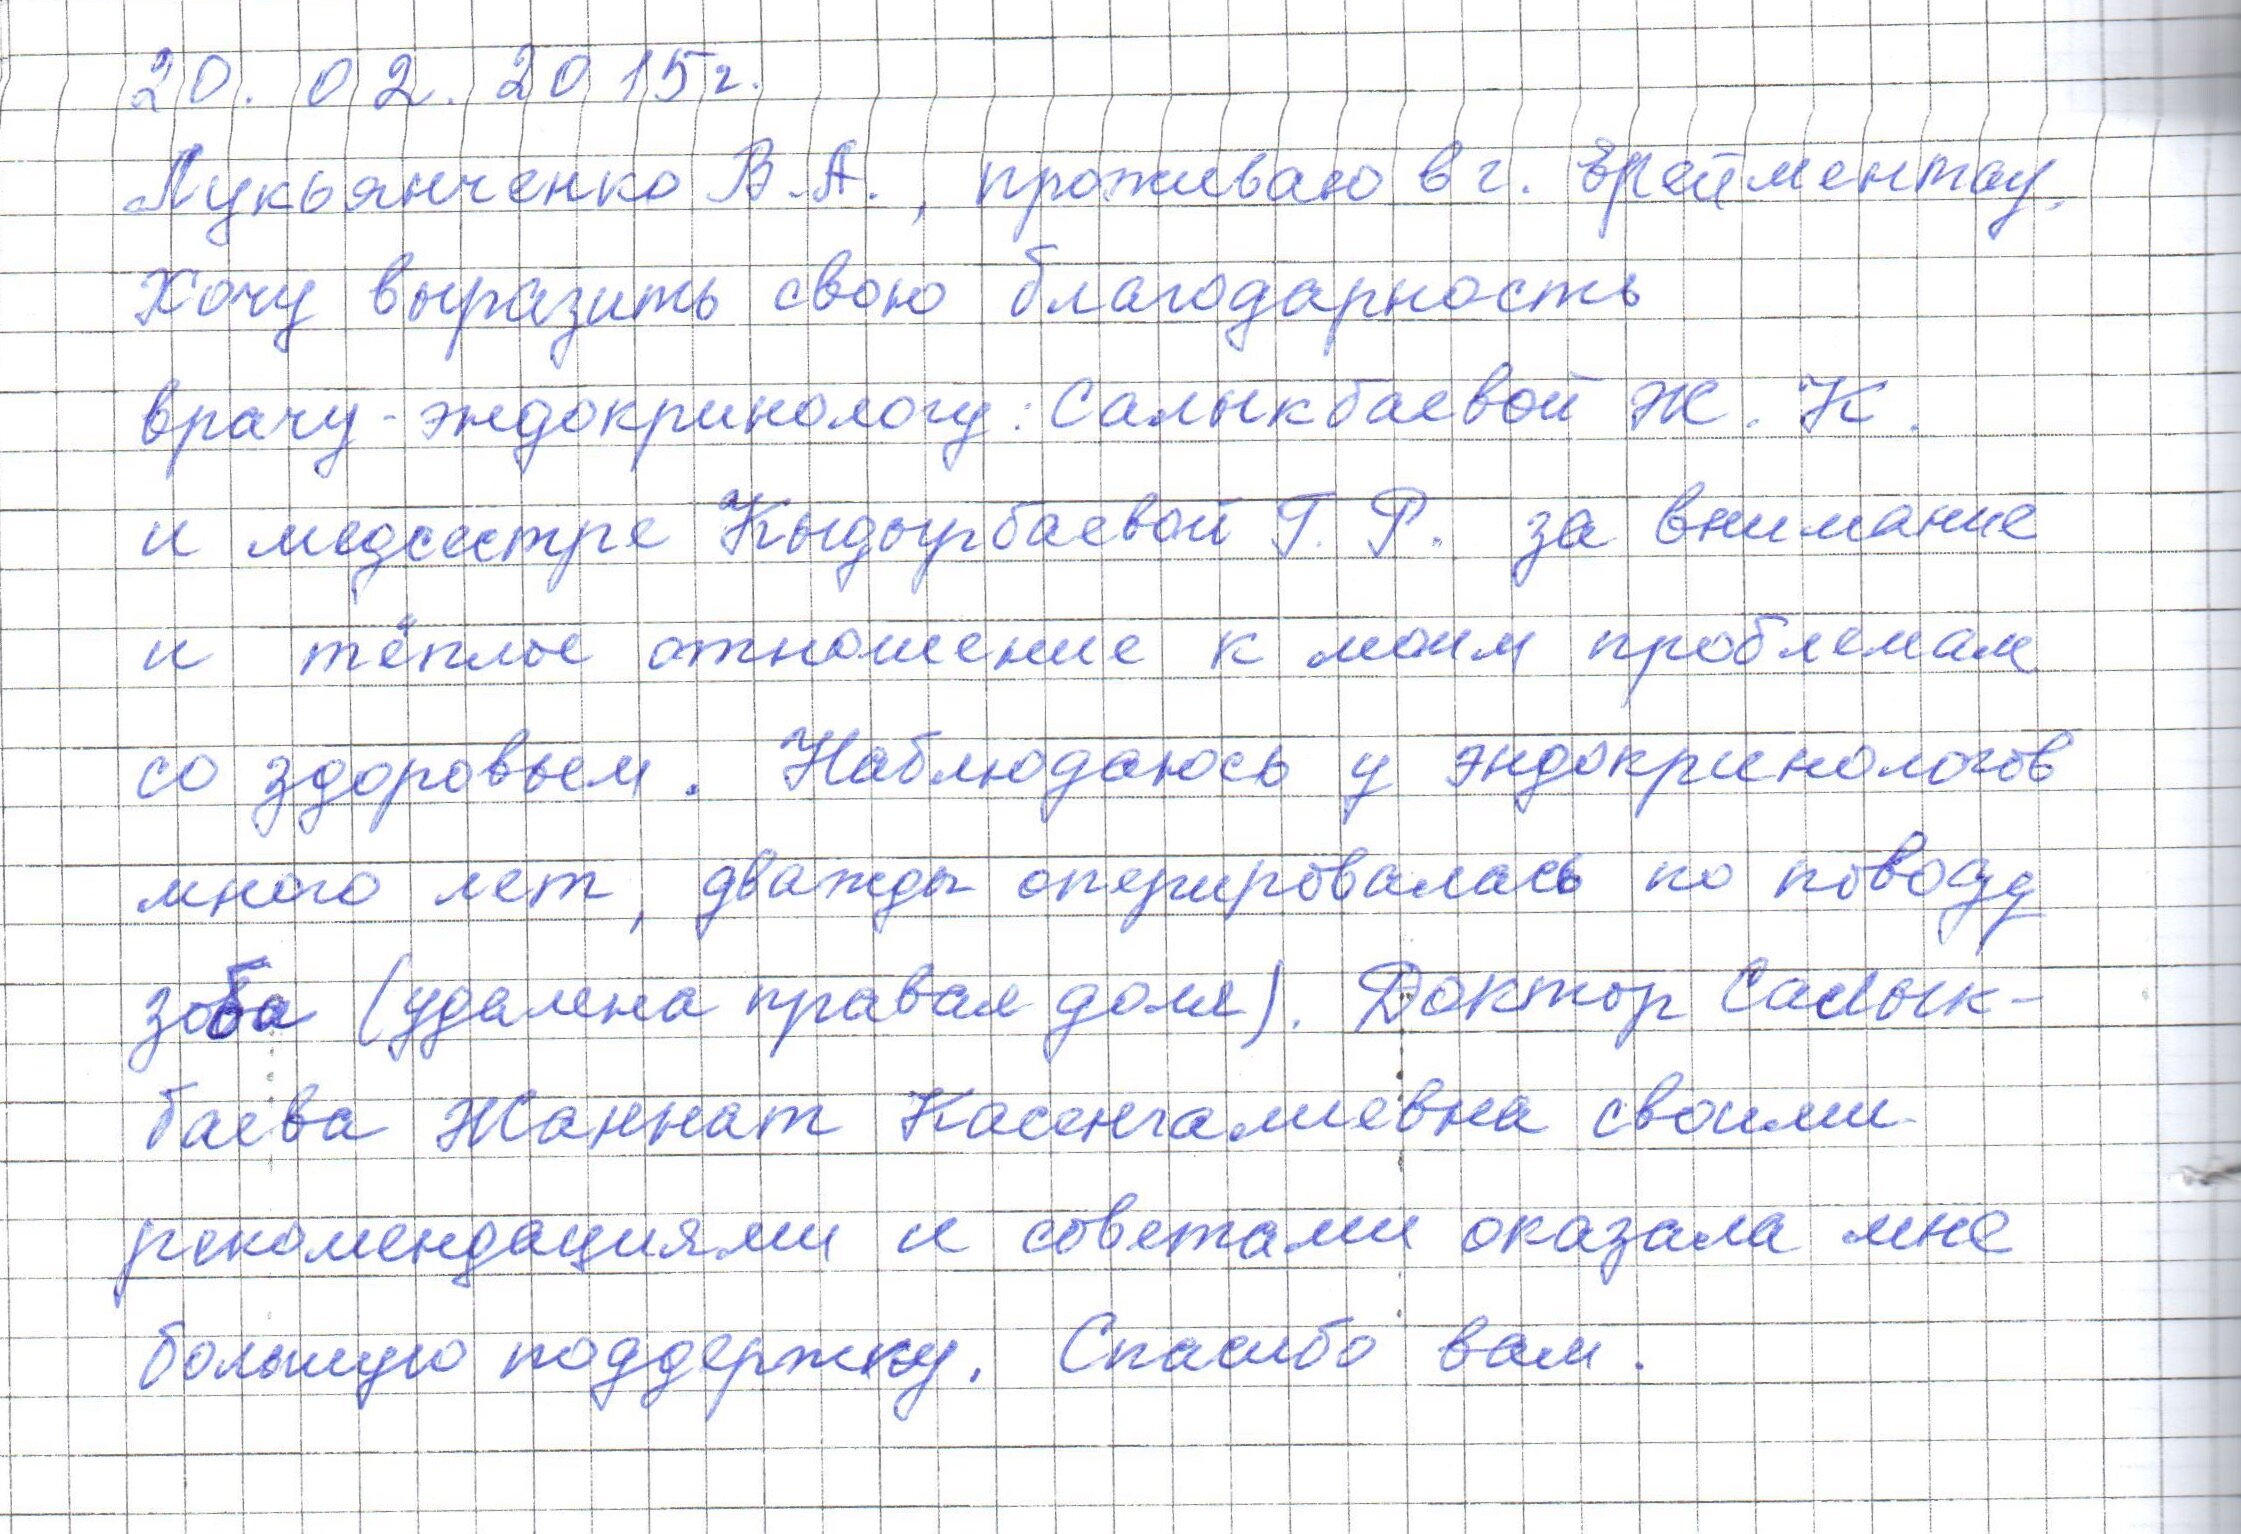 20.02.2015г.
Лукьянченко В.А., проживаю в г. Ерейментау.
Хочу выразить свою благодарность
врачу-эндокринологу: Салыкбаевой Ж.К.
и медсестре Кыдырбаевой Г.Р. за внимание
и тёплое отношение к моим проблемам
со здоровьем. Наблюдаюсь у эндокринологов
много лет, дважды оперировалась по поводу
зоба (удалена правая доля). Доктор Салык-
баева Жаннат Касенгалиевна своими
рекомендациями и советами оказала мне
большую поддержку. Спасибо вам.